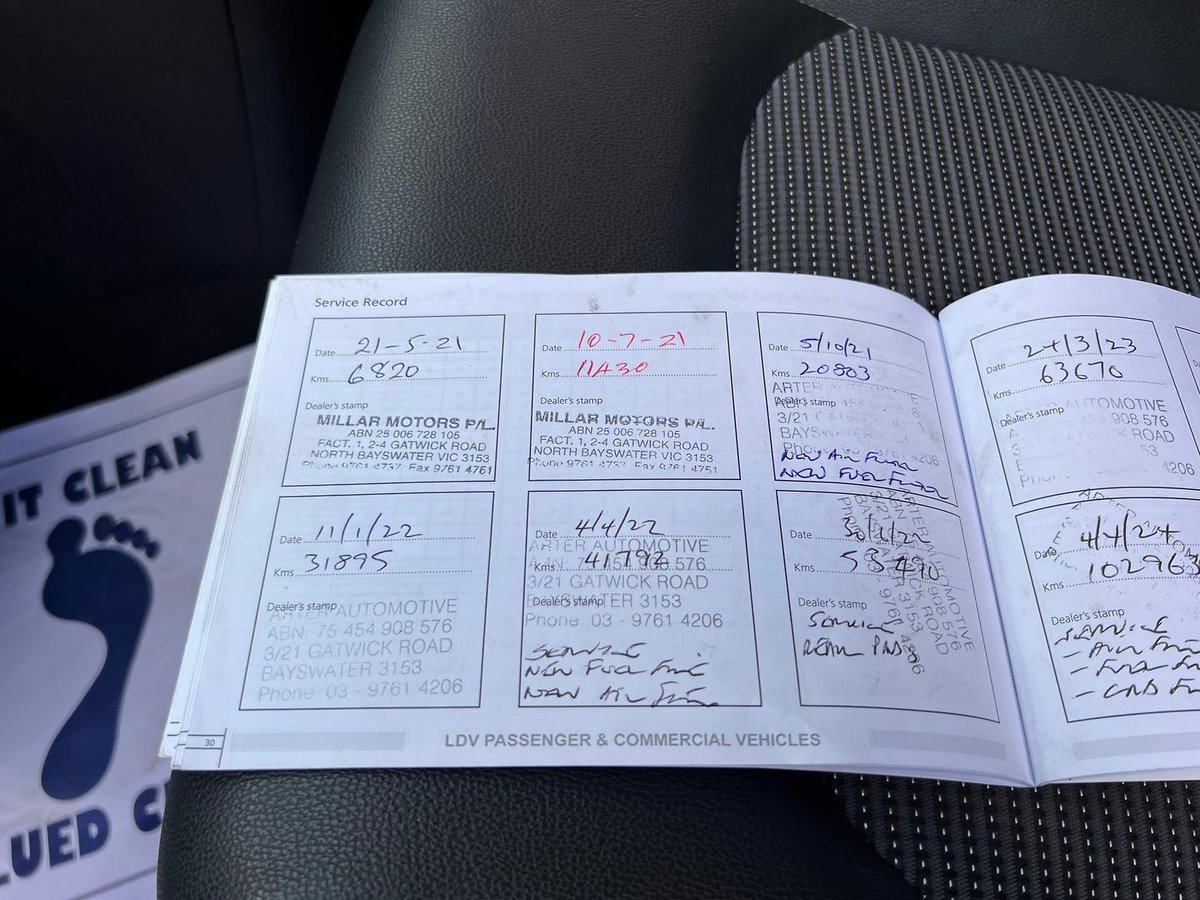 IT CLEAN
LUED C
Service Record
Date 21-5-21
Kms 6820
Dealer's stamp
MILLAR MOTORS P/L.
ABN 25 006 728 105
FACT. 1, 2-4 GATWICK ROAD
NORTH BAYSWATER VIC 3153
Phone 9761 4737 Fax 9761 4751
Date 10-7-21
Kms 11430
Dealer's stamp
MILLAR MOTORS P/L.
ABN 25 006 728 105
FACT. 1, 2-4 GATWICK ROAD
NORTH BAYSWATER VIC 3153
Phone 9761 4737 Fax 9761 4751
Date 5/10/21
Kms 20803
ARTER
Dealer's stamp
3/21
BAYS
4206
NEW AIR FILTER
NEW FUEL FILTER
Date 11/1/22
Kms 31895
Dealer's stamp
ARTER AUTOMOTIVE
ABN: 75 454 908 576
3/21 GATWICK ROAD
BAYSWATER 3153
Phone 03 - 9761 4206
Date 4/4/22
ARTER AUTOMOTIVE
Kms 41792
75 454 908 576
3/21 GATWICK ROAD
Dealer's stamp
BAYSWATER 3153
Phone 03 - 9761 4206
SERVICE
NEW FUEL
NEW AIR
Date
Kms
Dealer's stamp
SERVICE
REAR PADS
ARTER AUTOMOTIVE
Date 24/3/23
Kms 63670
Dealer's stamp
AUTOMOTIVE
908 576
ROAD
53
4206
Date 4/4/24
Kms 102963
Dealer's stamp
SERVICE
- AIR
- FUEL
30
LDV PASSENGER & COMMERCIAL VEHICLES